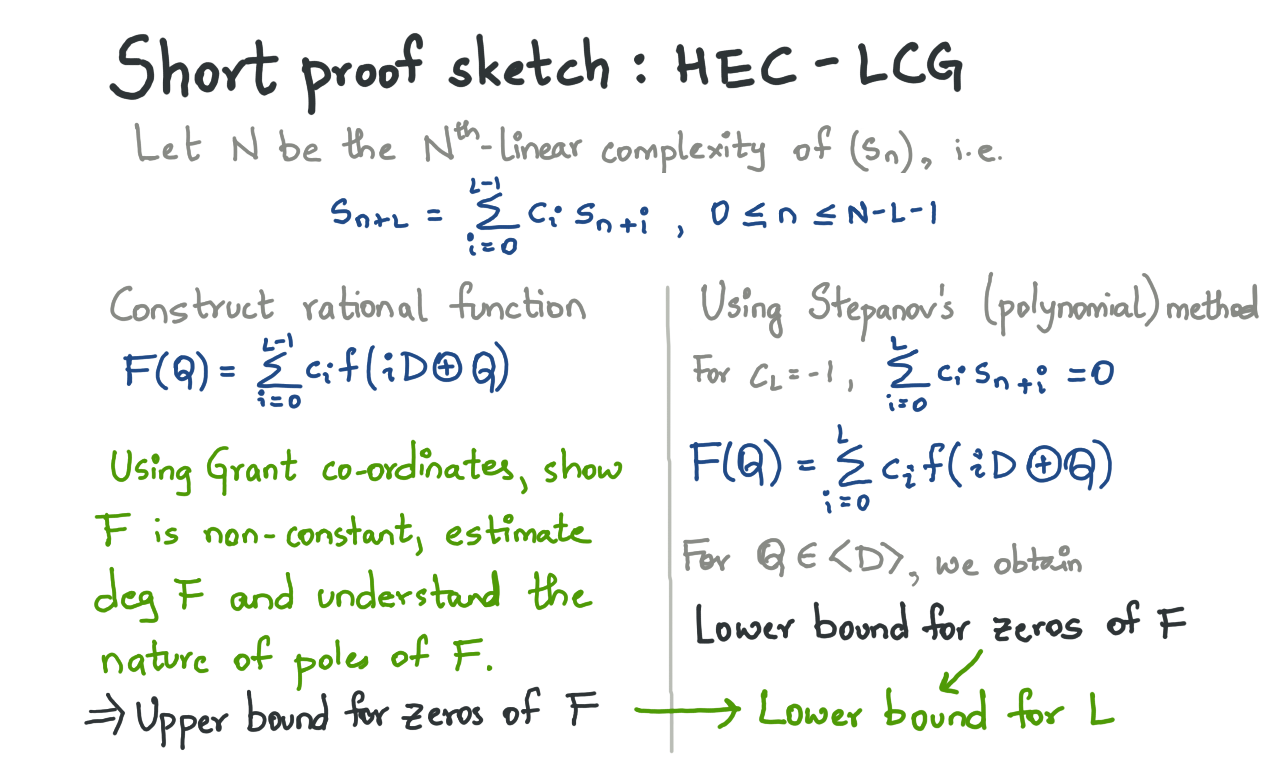 Short proof sketch : HEC - LCG
Let N be the Nth-linear complexity of (sn), i.e.
s_{n+L} = ∑_{i=0}^{L-1} c_i s_{n+i} , 0 ≤ n ≤ N-L-1
Construct rational function
F(Q) = ∑_{i=0}^{L-1} c_i f(iD⊕Q)
Using Grant co-ordinates, show
F is non-constant, estimate
deg F and understand the
nature of poles of F.
⇒ Upper bound for zeros of F
Using Stepanov's (polynomial) method
For c_L = -1, ∑_{i=0}^{L} c_i s_{n+i} = 0
F(Q) = ∑_{i=0}^{L} c_i f(iD⊕Q)
For Q ∈ <D>, we obtain
Lower bound for zeros of F
→ Lower bound for L